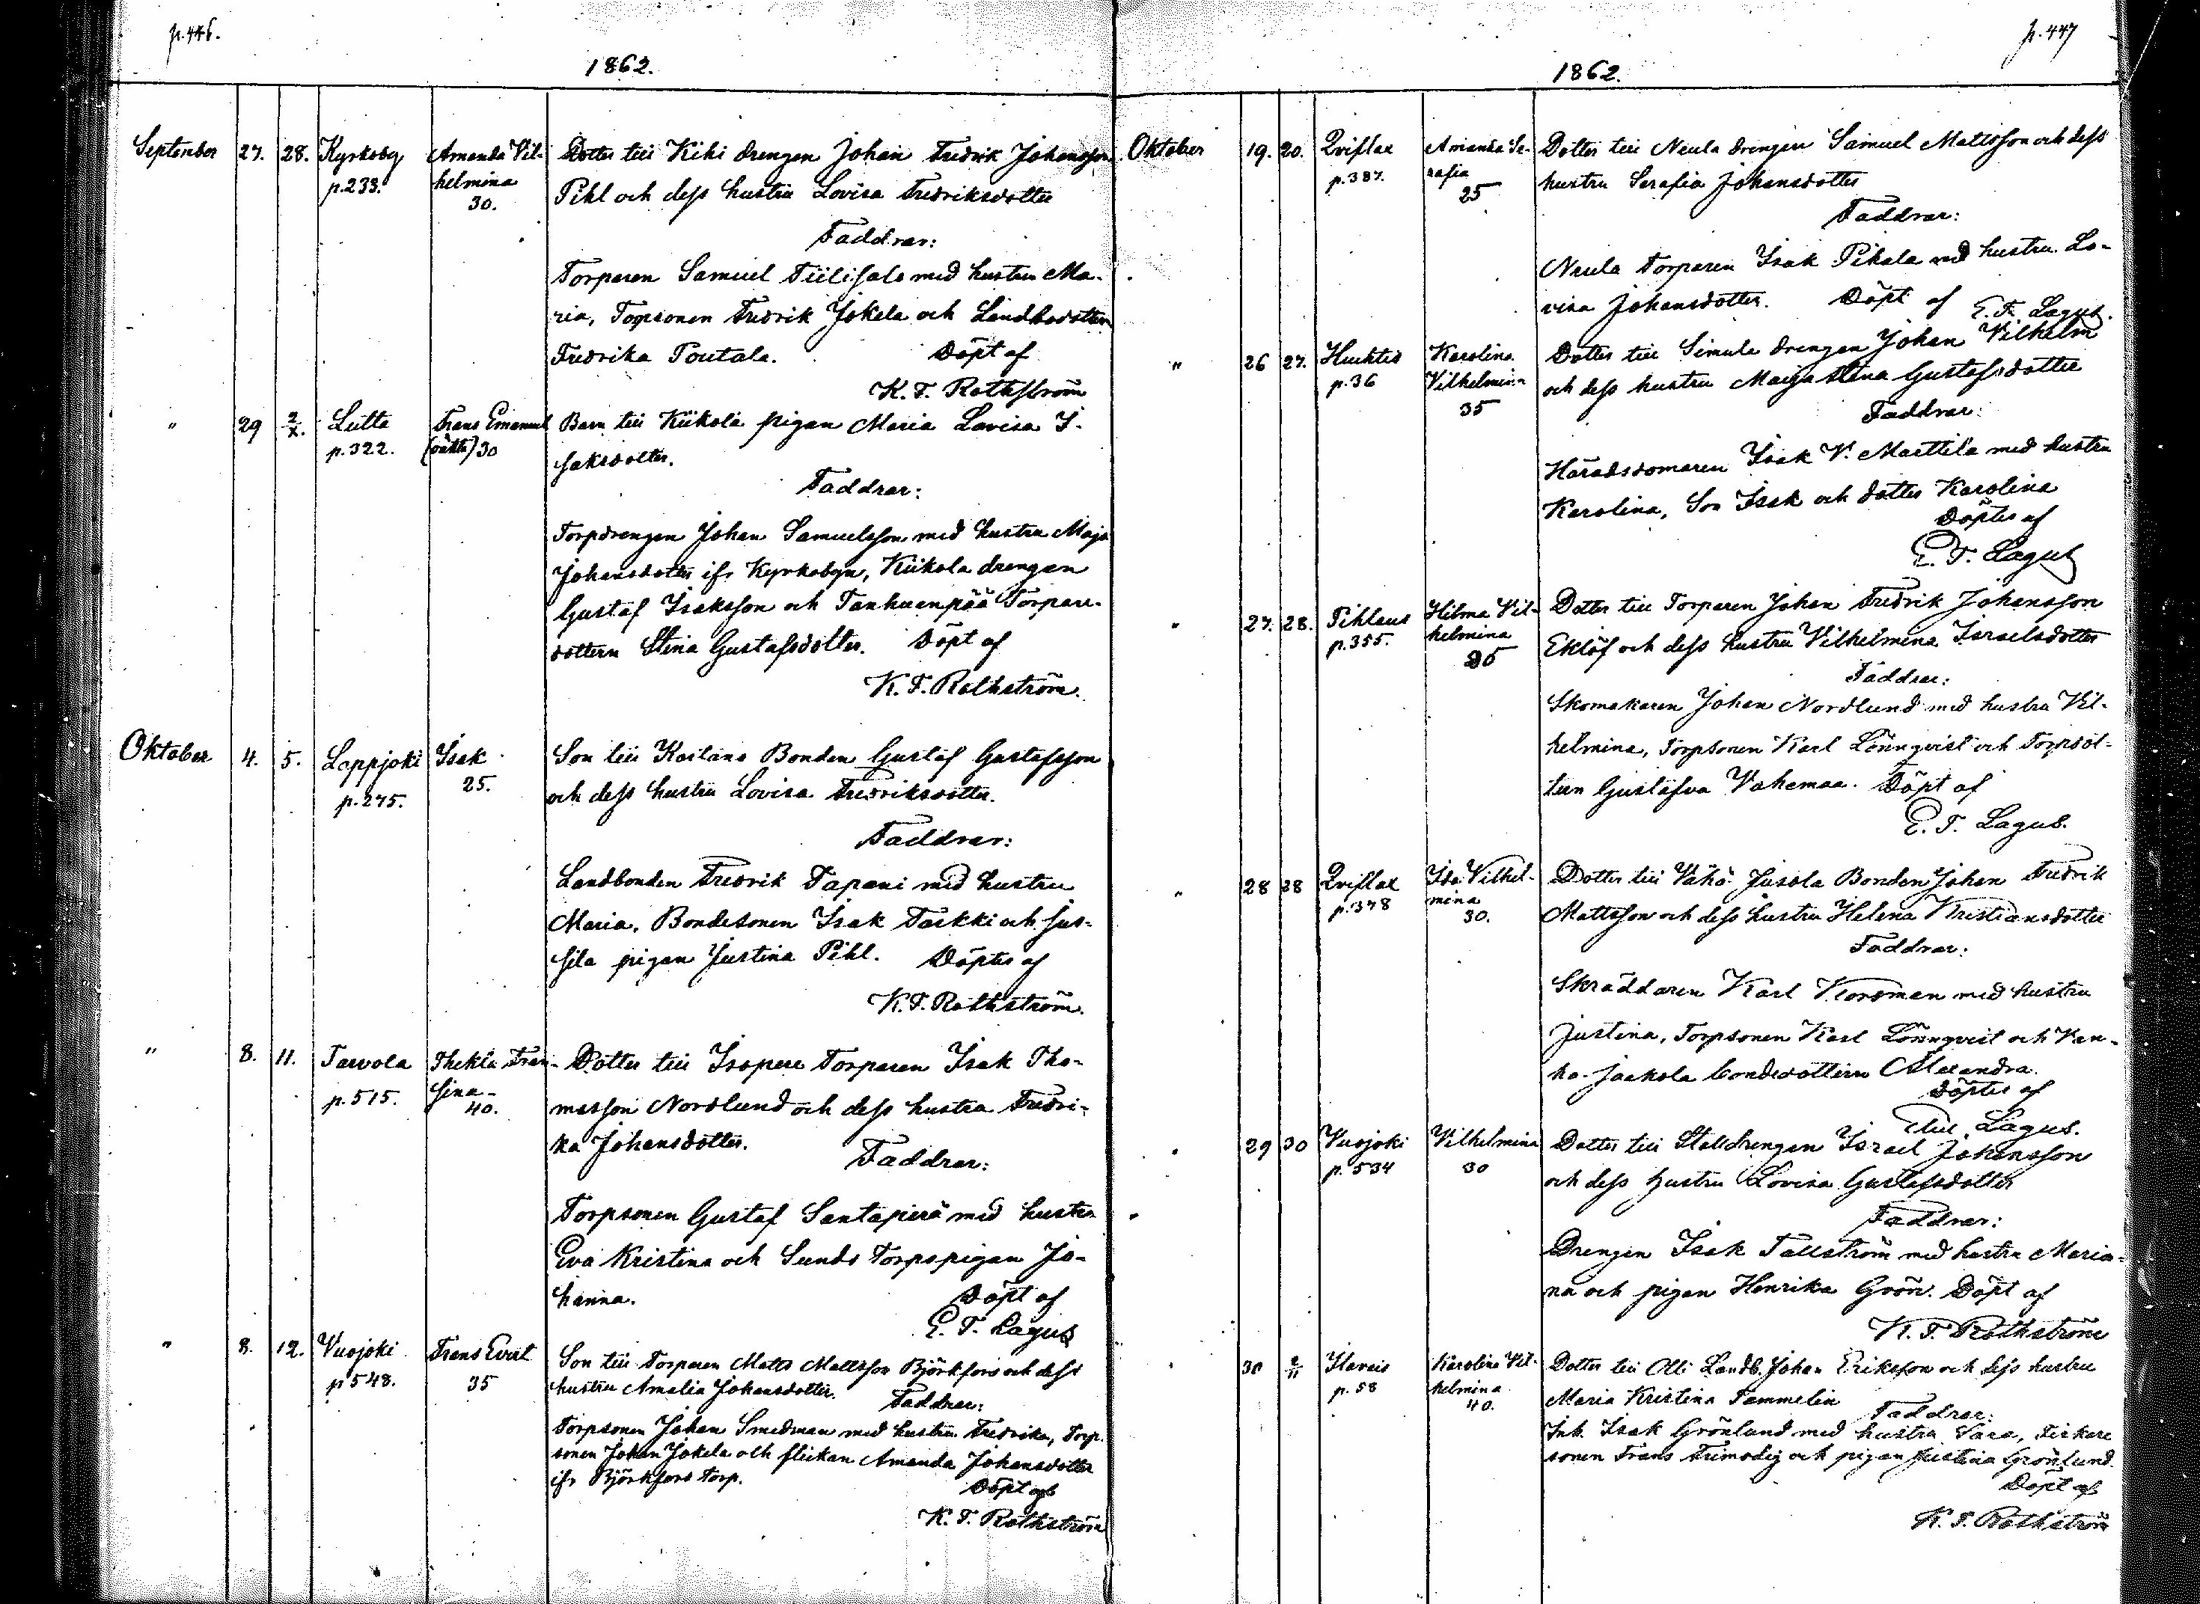 p. 446.
1862.
September 27. 28. Kyrkoby Amanda Vil- Dotter till Kiki drengen Johan Fredrik Johansson
p. 233. helmina Pihl och dess hustru Lovisa Fredriksdotter
30.
Faddrar:
Torparen Samuel Tiilisalo med hustru Ma-
ria, Torpsonen Fredrik Jokela och Landbodottern
Fredrika Poutala. Döpt af
K. F. Rothström
" 29 2/X. Lutta Frans Emanuel Barn till Kiikola pigan Maria Lovisa I-
p. 322. (oäkta) 30 saksdotter.
Faddrar:
Torpdrengen Johan Samuelsson med hustru Maja
Johansdotter ifr Kyrkobyn, Kiikola drengen
Gustaf Isaksson och Tanhuanpää Torpare-
dottern Stina Gustafsdotter. Döpt af
K. F. Rothström.
Oktober 4. 5. Lappjoki Isak Son till Kaitans Bonden Gustaf Gustafsson
p. 275. 25. och dess hustru Lovisa Fredriksdotter.
Faddrar:
Landbonden Fredrik Tapani med hustru
Maria, Bondesonen Isak Tarkki och Jus-
sila pigan Justina Pihl. Döptes af
K. F. Rothström.
" 8. 11. Tarvola Thekla Fran- Dotter till Isopere Torparen Isak Tho-
p. 515. sina massson Nordlund och dess hustru Fredri-
40.
ka Johansdotter. Faddrar:
Torpsonen Gustaf Santaperä med hustru
Eva Kristina och Sunds Torpspigan Jo-
hanna. Döpt af
E. F. Lagus
" 8. 12. Vuojoki Frans Evert Son till Torparen Matts Mattsson Björkfors och dess
p 548. 35 hustru Amalia Johansdotter. Faddrar:
Torpsonen Johan Smedman med hustru Fredrika, Torp-
sonen Johan Jokela och flickan Amanda Johansdotter
ifr Björkfors torp. Döpt af
K. F. Rothström
p. 447
1862.
Oktober 19. 20. Qviflax Amanda Se- Dotter till Neula drengen Samuel Mattsson och dess
p. 387. rafia hustru Serafia Johansdotter
25
Faddrar:
Neula Torparen Isak Pikala med hustru Lo-
visa Johansdotter. Döpt af E. F. Lagus.
" 26 27. Huchtis Karolina Dotter till Simula drengen Johan Vilhelm
p. 36 Vilhelmina och dess hustru Maija Stina Gustafsdotter
35
Faddrar:
Häradsdomaren Isak V. Marttila med hustru
Karolina, Son Isak och dotter Karolina
Döptes af
E. F. Lagus
" 27. 28. Pihlaus Hilma Vil- Dotter till Torparen Johan Fredrik Johansson
p. 355. helmina Eklöf och dess hustru Vilhelmina Israelsdotter
Faddrar:
Skomakaren Johan Nordlund med hustru Vil-
helmina, Torpsonen Karl Lönnqvist och Torpdot-
tern Gustafva Vahemaa. Döpt af
E. F. Lagus.
" 28 28 Qviflax Ida Vilhel- Dotter till Vähä Jusola Bonden Johan Fredrik
p. 378 mina Mattsson och dess hustru Helena Kristiansdotter
30.
Faddrar:
Skräddaren Karl Korsman med hustru
Justina, Torpsonen Karl Lönnqvist och Van-
ha-Jaakola bondedottern Alexandra.
Döptes af
Lagus.
" 29 30 Vuojoki Vilhelmina Dotter till Stalldrengen Israel Johansson
p. 534 30 och dess hustru Lovisa Gustafsdotter
Faddrar:
Drengen Isak Tallström med hustru Maria-
na och pigan Henrika Grön. Döpt af
K. F. Rothström
" 30 2/11 Ilavais Karolina Vil- Dotter till Olli Landb. Johan Eriksson och dess hustru
p. 58 helmina Maria Kristina Tammelin
40.
Faddrar:
Inh. Isak Grönlund med hustru Sara, Fiskare
sonen Frans Frimodig och pigan Justina Grönlund.
Döpt af
K. F. Rothström